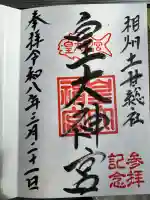 相州土甘総社
皇大神宮
参拝記念
奉拝令和八年三月二十一日